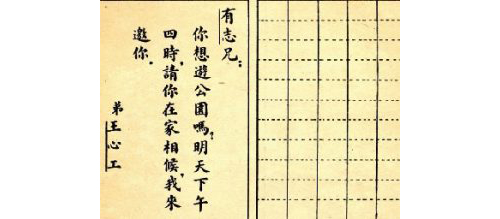 有志兄：
你想遊公園嗎？明天下午
四時，請你在家相候，我來
邀你。
弟王心工